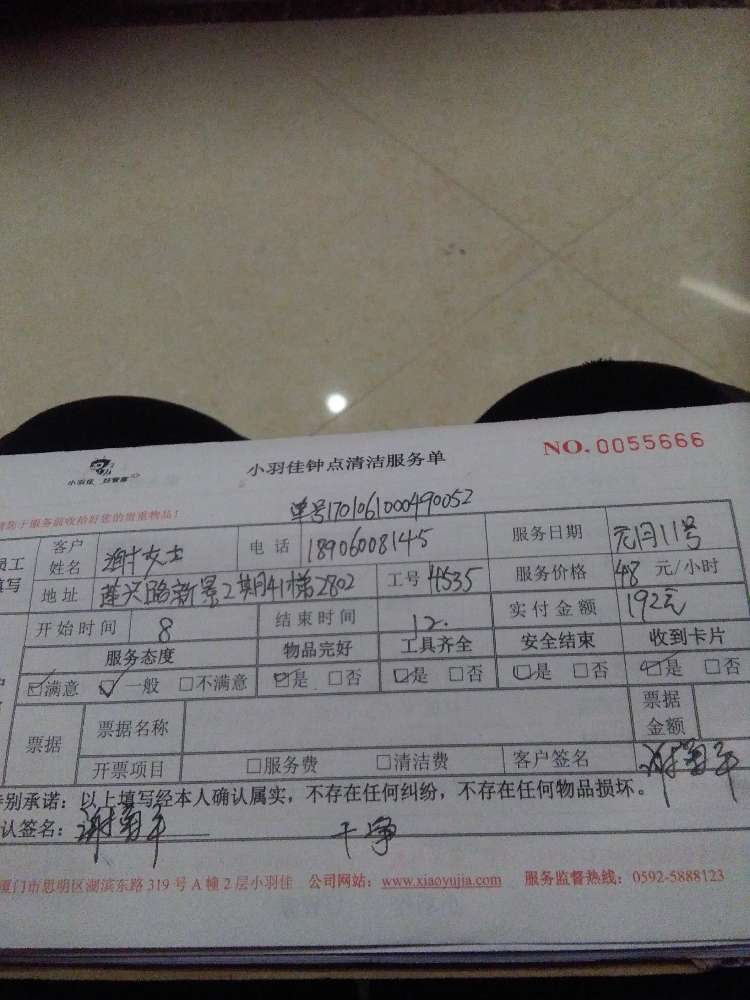 小羽佳 好管家
小羽佳钟点清洁服务单
NO.0055666
请您于服务前收拾好您的贵重物品!
单号1701061000490052
员工填写
客户姓名 谢女士 电话 18906008145 服务日期 元月11号
地址 莲兴路新景2期41梯2802 工号 4535 服务价格 48 元/小时
开始时间 8 结束时间 12. 实付金额 192元
服务态度 物品完好 工具齐全 安全结束 收到卡片
☑满意 ☑一般 □不满意 ☑是 □否 ☑是 □否 ☑是 □否 ☑是 □否
票据 票据名称 票据金额
开票项目 □服务费 □清洁费 客户签名
特别承诺:以上填写经本人确认属实,不存在任何纠纷,不存在任何物品损坏。
认签名: 干净
厦门市思明区湖滨东路319号A幢2层小羽佳 公司网站:www.xiaoyujia.com 服务监督热线:0592-5888123